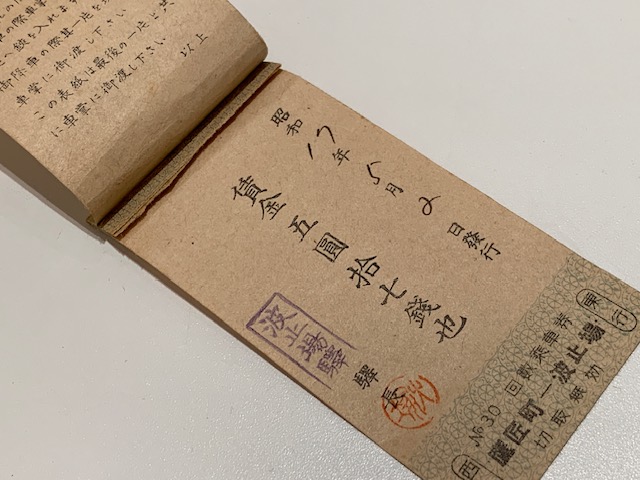 へ鋏を入れます
御降車の際其一定を
車掌に御渡し下さい
この表紙は最後の一定と共
に車掌に御渡し下さい
以上
昭和17年5月2日發行
賃金五圓拾七錢也
波止場驛
驛長
東行
No 30 回數乘車券
鷹匠町―波止場
切取無効
西